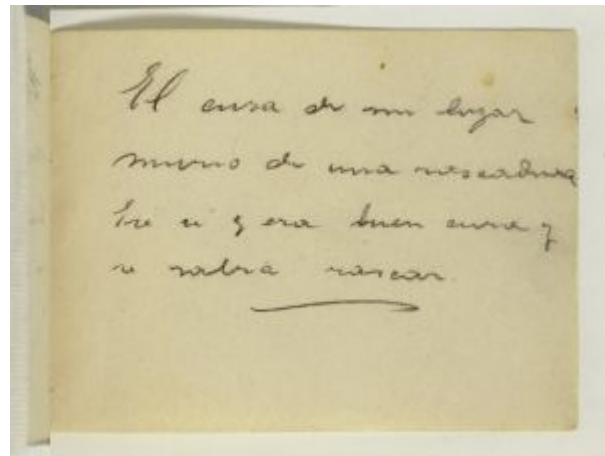 El cura de mi lugar
murio de una rascadura
y era buen cura y
se sabia rascar